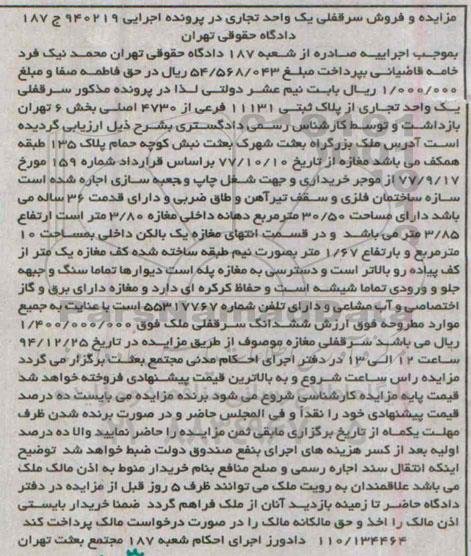 مزایده و فروش سرقفلی یک واحد تجاری در پرونده اجرایی ۹۴۰۲۱۹ ج ۱۸۷
دادگاه حقوقی تهران
بموجب اجراییه صادره از شعبه ۱۸۷ دادگاه حقوقی تهران محمد نیک فرد
خامه قاضیانی بپرداخت مبلغ ۵۴/۵۶۸/۰۴۳ ریال در حق فاطمه صفا و مبلغ
۱/۰۰۰/۰۰۰ ریال بابت نیم عشر دولتی لذا در پرونده مذکور سرقفلی
یک واحد تجاری از پلاک ثبتی ۱۱۱۳۱ فرعی از ۴۷۳۰ اصلی بخش ۶ تهران
بازداشت و توسط کارشناس رسمی دادگستری بشرح ذیل ارزیابی گردیده
است آدرس ملک بزرگراه بعثت شهرک بعثت نبش کوچه حمام پلاک ۱۳۵ طبقه
همکف می باشد مغازه از تاریخ ۷۷/۱۰/۱۰ براساس قرارداد شماره ۱۵۹ مورخ
۷۷/۹/۱۷ از موجر خریداری و جهت شغل چاپ و جعبه سازی اجاره شده است
سازه ساختمان فلزی و سقف تیرآهن و طاق ضربی و دارای قدمت ۳۶ ساله می
باشد دارای مساحت ۳۰/۵۰ مترمربع دهانه داخلی مغازه ۳/۸۰ متر است ارتفاع
۳/۸۵ متر می باشد و در قسمت انتهای مغازه یک بالکن داخلی بمساحت ۱۰
مترمربع و بارتفاع ۱/۶۷ متر بصورت نیم طبقه ساخته شده کف مغازه یک متر از
کف پیاده رو بالاتر است و دسترسی به مغازه پله است دیوارها تماما سنگ و جبهه
جلو و ورودی تماما شیشه است و حفاظ کرکره ای دارد و مغازه دارای برق و گاز
اختصاصی و آب مشاعی و دارای تلفن شماره ۵۵۳۱۷۷۶۷ است با عنایت به جمیع
موارد مطروحه فوق ارزش ششدانگ سرقفلی ملک فوق ۱/۴۰۰/۰۰۰/۰۰۰
ریال می باشد سرقفلی مغازه موصوف از طریق مزایده در تاریخ ۹۴/۱۲/۲۵
ساعت ۱۲ الی ۱۳ در دفتر اجرای احکام مدنی مجتمع بعثت برگزار می گردد
مزایده راس ساعت شروع و به بالاترین قیمت پیشنهادی فروخته خواهد شد
قیمت پایه مزایده کارشناسی شروع می شود برنده مزایده می بایست ده درصد
قیمت پیشنهادی خود را نقداً و فی المجلس حاضر و در صورت برنده شدن ظرف
مهلت یکماه از تاریخ برگزاری مابقی ثمن مزایده را حاضر نماید والا ده درصد
اولیه بعد از کسر هزینه های اجرای بنفع صندوق دولت ضبط خواهد شد توضیح
اینکه انتقال سند اجاره رسمی و صلح منافع بنام خریدار منوط به اذن مالک ملک
می باشد علاقمندان به رویت ملک می توانند ظرف ۵ روز قبل از مزایده در دفتر
دادگاه حاضر تا زمینه بازدید آنان از ملک فراهم گردد ضمنا خریدار بایستی
اذن مالک را اخذ و حق مالکانه مالک را در صورت درخواست مالک پرداخت کند
۱۱۰/۱۳۴۴۶۴ دادورز اجرای احکام شعبه ۱۸۷ مجتمع بعثت تهران